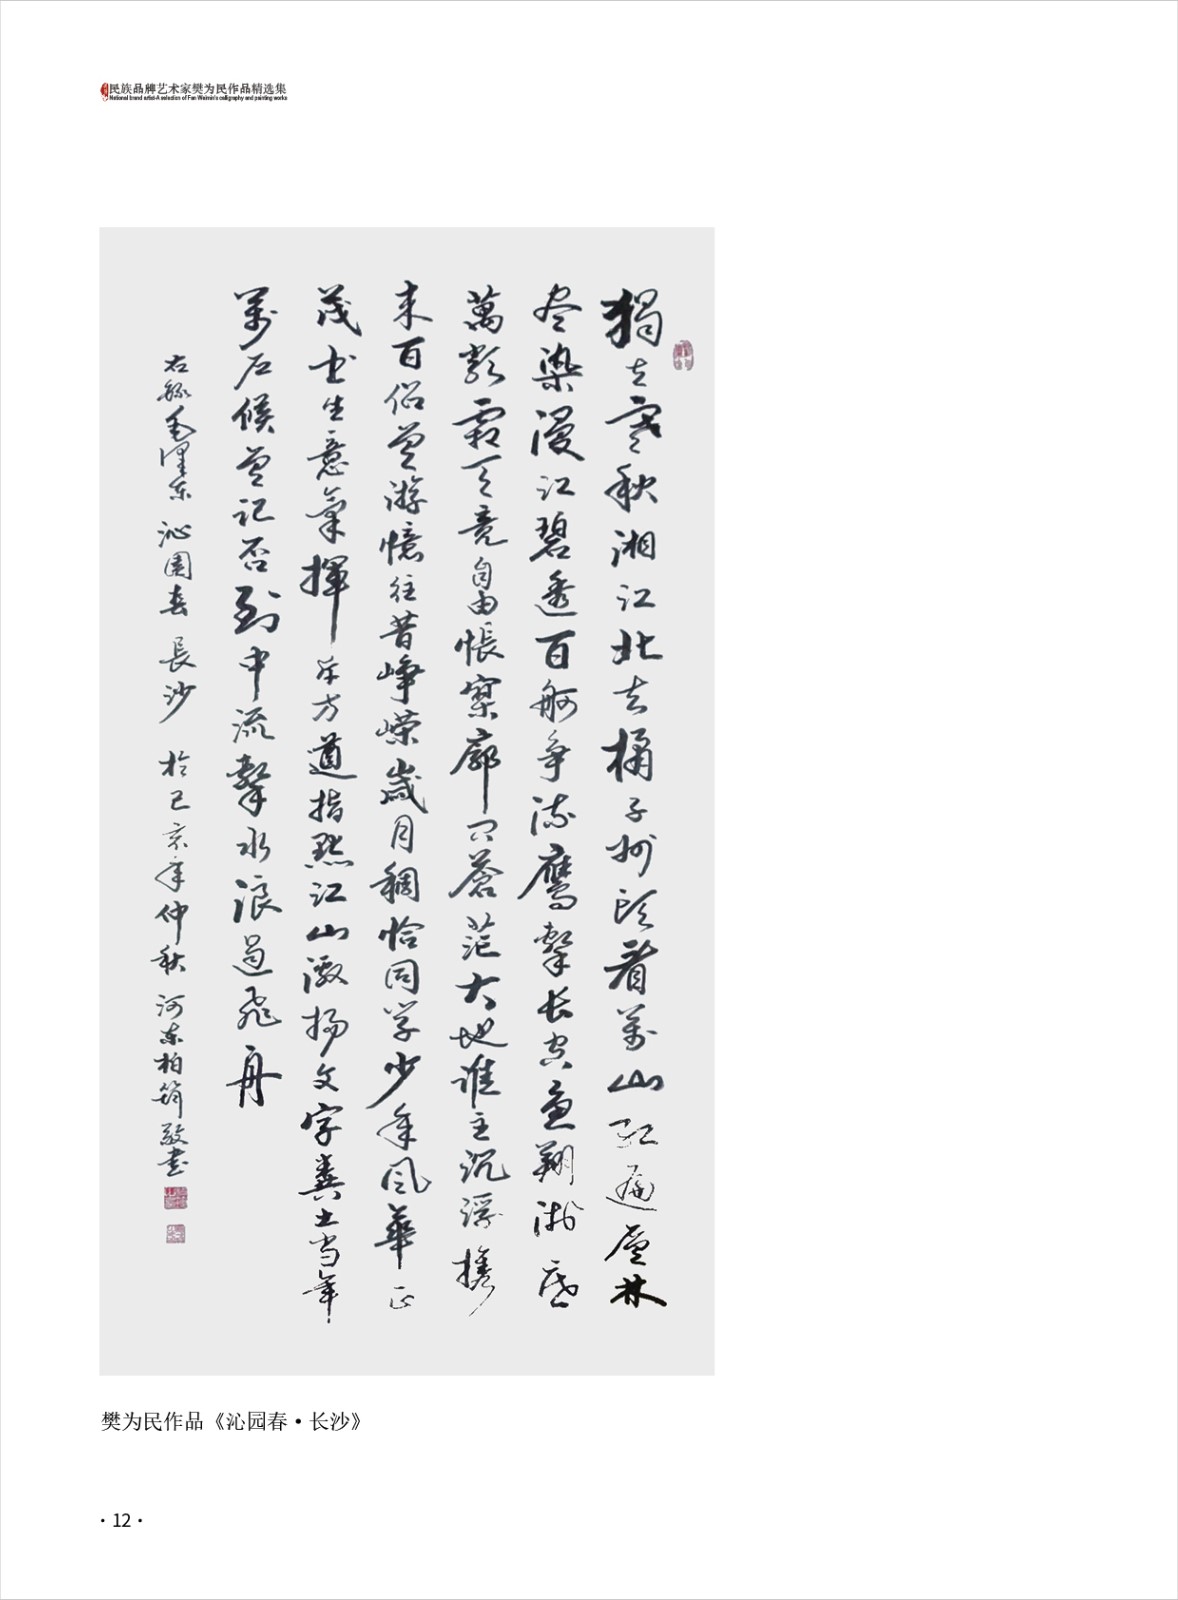 民族品牌艺术家樊为民作品精选集
National brand artist-A selection of Fan Weimin's calligraphy and painting works
獨立寒秋湘江北去橘子洲頭看萬山紅遍層林
尽染漫江碧透百舸争流鹰擊长空魚翔浅底
萬類霜天竞自由悵寥廓问蒼茫大地谁主沉浮携
来百侣曾游憶往昔峥嵘歲月稠恰同学少年风華正
茂书生意氣揮斥方遒指點江山激扬文字糞土当年
萬户候曾记否到中流擊水浪遏飛舟
右録毛澤东 沁園春 長沙 於己亥年仲秋 河东柏筠敬書
樊为民作品《沁园春·长沙》
·12·